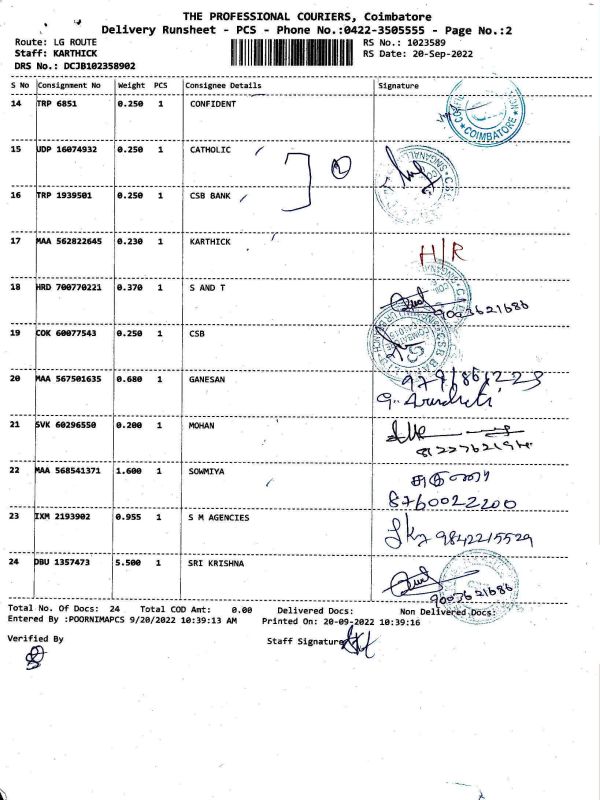 THE PROFESSIONAL COURIERS, Coimbatore
Delivery Runsheet - PCS - Phone No.:0422-3505555 - Page No.:2
Route: LG ROUTE RS No.: 1023589
Staff: KARTHICK RS Date: 20-Sep-2022
DRS No.: DCJB102358902
S No Consignment No Weight PCS Consignee Details Signature
14 TRP 6851 0.250 1 CONFIDENT
COIMBATORE
15 UDP 16074932 0.250 1 CATHOLIC
2
16 TRP 1939501 0.250 1 CSB BANK
17 MAA 562822645 0.230 1 KARTHICK H/R
18 HRD 700770221 0.370 1 S AND T 9003621686
19 COK 60077543 0.250 1 CSB
20 MAA 567501635 0.680 1 GANESAN
21 SVK 60296550 0.200 1 MOHAN
22 MAA 568541371 1.600 1 SOWMIYA
8760022200
23 IXM 2193902 0.955 1 S M AGENCIES 9842215529
24 DBU 1357473 5.500 1 SRI KRISHNA 9003621686
Total No. Of Docs: 24 Total COD Amt: 0.00 Delivered Docs: Non Delivered Docs:
Entered By :POORNIMAPCS 9/20/2022 10:39:13 AM Printed On: 20-09-2022 10:39:16
Verified By Staff Signature